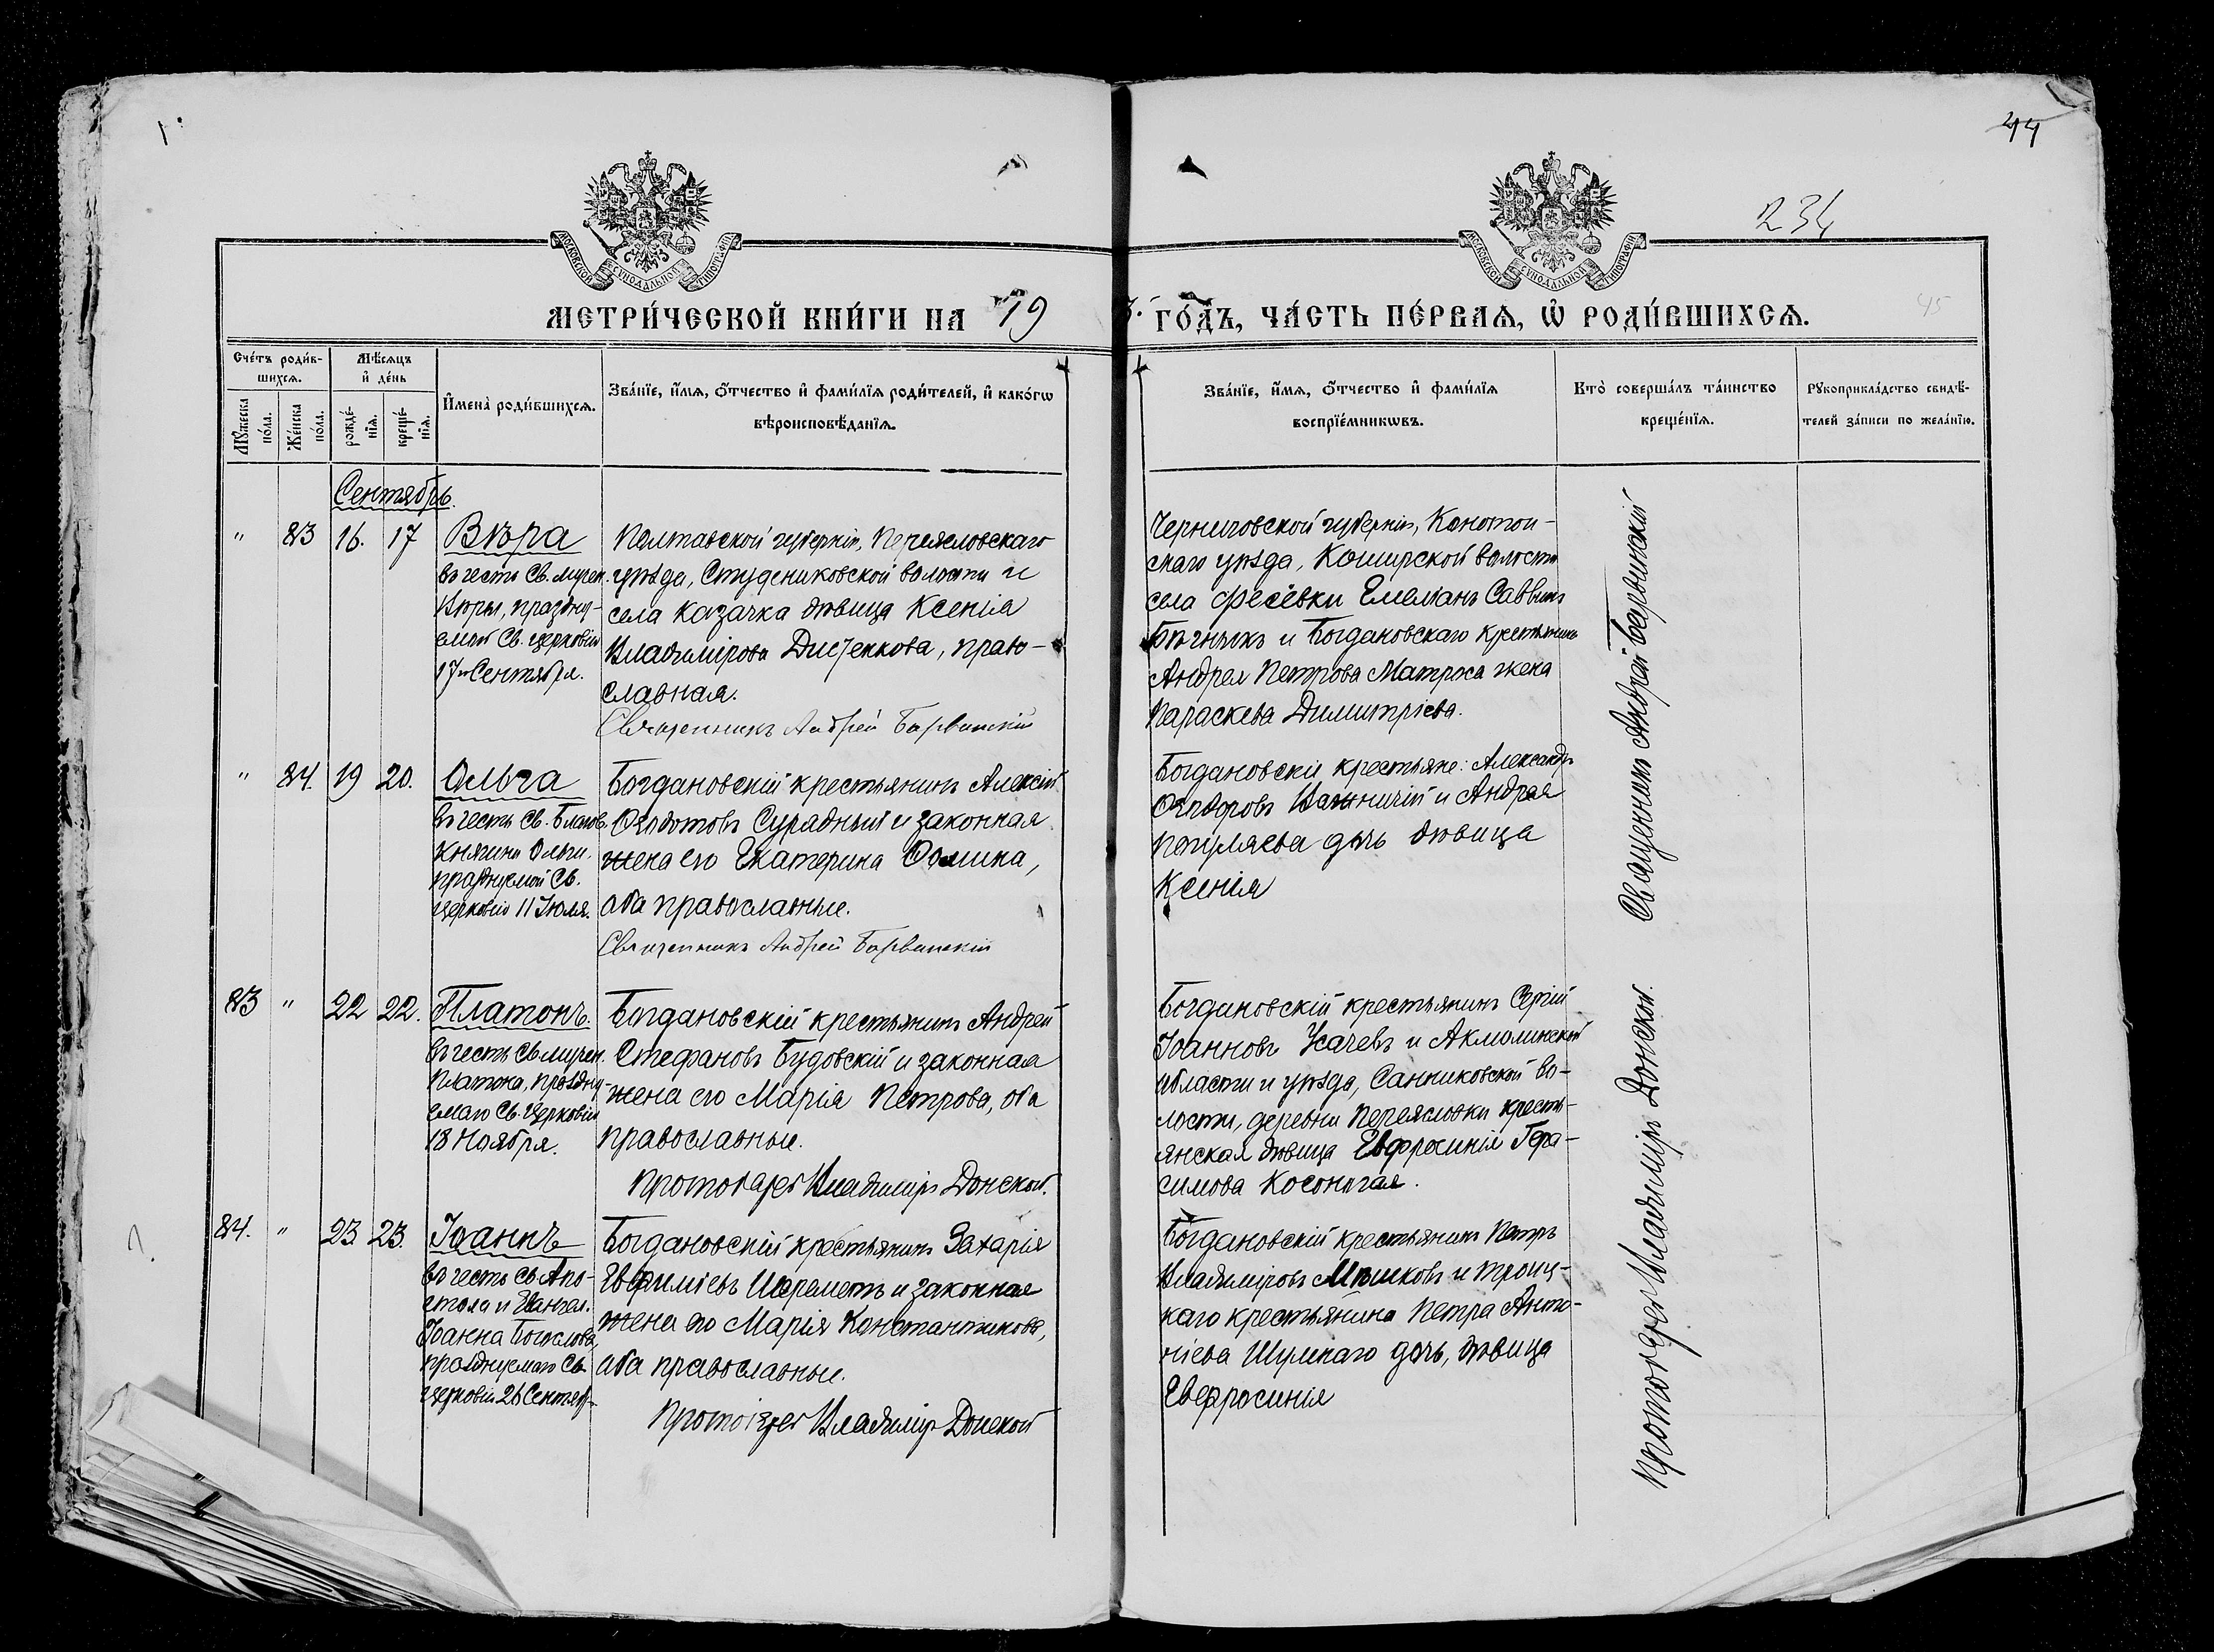 44
234
45
МОСКОВСКОЙ СѴНОДАЛЬНОЙ ТИПОГРАФІИ
МОСКОВСКОЙ СѴНОДАЛЬНОЙ ТИПОГРАФІИ
МЕТРИ́ЧЕСКОЙ КНИ́ГИ НА 19
ГО́ДЪ, ЧА́СТЬ ПЕ́РВАѦ, Ѡ҆ РОДИ́ВШИХСѦ.
Сче́тъ роди́в-
шихсѧ.
Мѣ́сѧцъ
и҆ де́нь
Мꙋ́жеска
по́ла.
Же́нска
по́ла.
рожде́-
нїѧ.
креще́-
нїѧ.
И҆мена̀ роди́вшихсѧ.
Зва́нїе, и҆́мѧ, ѻ҆́тчество и҆ фами́лїѧ роди́телей, и҆ како́гѡ
вѣроисповѣ́данїѧ.
Зва́нїе, и҆́мѧ, ѻ҆́тчество и҆ фами́лїѧ
воспрїе́мникѡвъ.
Кто̀ соверша́лъ та́инство
креще́нїѧ.
Рꙋкоприкла́дство свидѣ́-
телей за́писи по жела́нїю.
Сентябрь.
" 83 16. 17 Вѣра
въ честь Св. мучен.
Вѣры, праздну-
емой Св. церковію
17го Сентября.
Полтавской губерніи, Переясловскаго
уѣзда, Студениковской волости и
села казачка дѣвица Ксенія
Владимірова, право-
славная.
Священникъ Андрей Барвинскій
Черниговской губерніи, Конотоп-
скаго уѣзда, Коширской волости
села Фесевки Емеліанъ Саввинъ
и Богдановскаго крестьянина
Андрея Петрова Матроса жена
Параскева Димитріева.
Священникъ Андрей Барвинскій
" 84. 19 20. Ольга
въ честь Св. Благов.
Княгини Ольги,
празднуемой Св.
церковію 11 Іюля.
Богдановскій крестьянинъ Алексій
Ѳеодотовъ Сурадный и законная
жена его Екатерина Ѳомина,
оба православные.
Священникъ Андрей Барвинскій
Богдановскіе крестьяне: Александръ
Ѳеодоровъ и Андрея
дочь дѣвица
Ксенія
83 " 22 22. Платонъ.
въ честь Св. мучен.
Платона, праздну-
емаго Св. Церковію
18 Ноября.
Богдановскій крестьянинъ Андрей
Стефановъ Будовскій и законная
жена его Марія Петрова, оба
православные.
Протоіерей Владиміръ Донской.
Богдановскій крестьянинъ Сергій
Іоанновъ Усачевъ и Акмолинской
области и уѣзда, Санниковской во-
лости, деревни Переясловки кресть-
янская дѣвица Евфросинія Гера-
симова Косоногая.
Протоіерей Владиміръ Донской.
84. " 23. 23. Іоаннъ
въ честь Св. Апо-
стола и Евангел.
Іоанна Богослова,
празднуемаго Св.
церковію 26 Сентяб.
Богдановскій крестьянинъ Захарія
Евфиміевъ Шереметъ и законная
жена его Марія Константинова,
оба православные.
Протоіерей Владиміръ Донской
Богдановскій крестьянинъ Петръ
Владиміровъ Мѣшковъ и Троиц-
каго крестьянина Петра Анто-
ніева Шумскаго дочь, дѣвица
Евфросинія